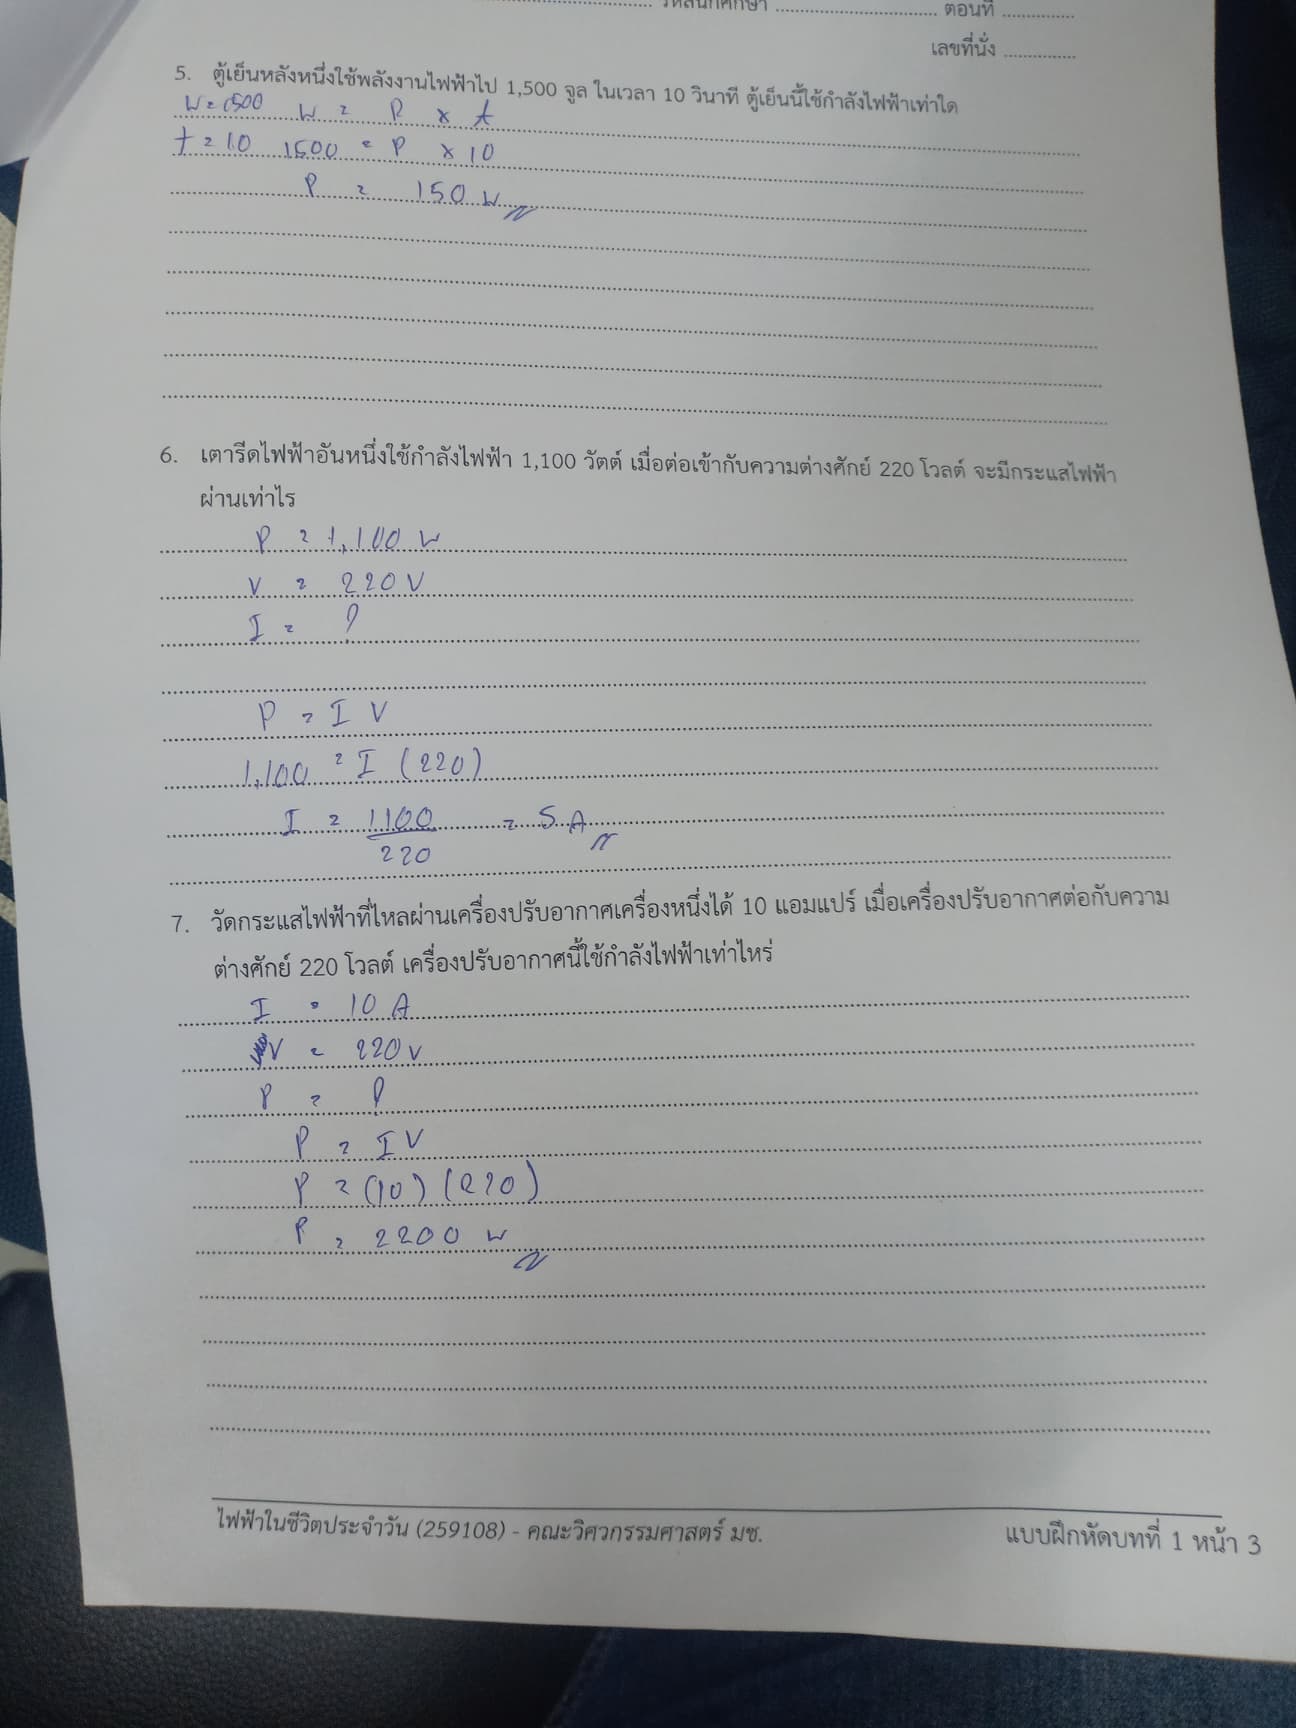 รหัสนักศึกษา ........................ ตอนที่ ............
เลขที่นั่ง ............
5. ตู้เย็นหลังหนึ่งใช้พลังงานไฟฟ้าไป 1,500 จูล ในเวลา 10 วินาที ตู้เย็นนี้ใช้กำลังไฟฟ้าเท่าใด
W = 1500 W = P x t
t = 10 1500 = P x 10
P = 150 W
6. เตารีดไฟฟ้าอันหนึ่งใช้กำลังไฟฟ้า 1,100 วัตต์ เมื่อต่อเข้ากับความต่างศักย์ 220 โวลต์ จะมีกระแสไฟฟ้า
ผ่านเท่าไร
P = 1,100 W
V = 220 V
I = ?
P = I V
1,100 = I (220)
I = 1100 = 5 A
220
7. วัดกระแสไฟฟ้าที่ไหลผ่านเครื่องปรับอากาศเครื่องหนึ่งได้ 10 แอมแปร์ เมื่อเครื่องปรับอากาศต่อกับความ
ต่างศักย์ 220 โวลต์ เครื่องปรับอากาศนี้ใช้กำลังไฟฟ้าเท่าไหร่
I = 10 A
V = 220 V
P = ?
P = I V
P = (10) (220)
P = 2200 W
ไฟฟ้าในชีวิตประจำวัน (259108) - คณะวิศวกรรมศาสตร์ มช. แบบฝึกหัดบทที่ 1 หน้า 3